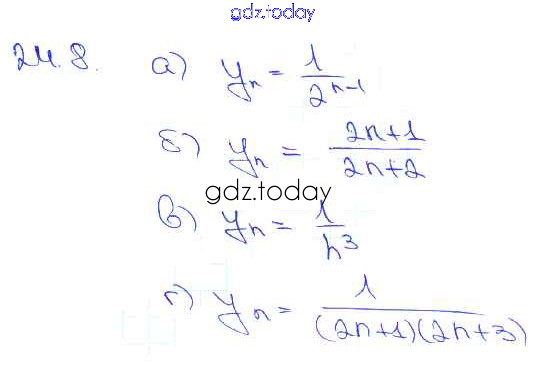 gdz.today
24.8. а) yₙ = 1/2ⁿ⁻¹
б) yₙ = (2n+1)/(2n+2)
gdz.today
в) yₙ = 1/n³
г) yₙ = 1/((2n+1)(2n+3))